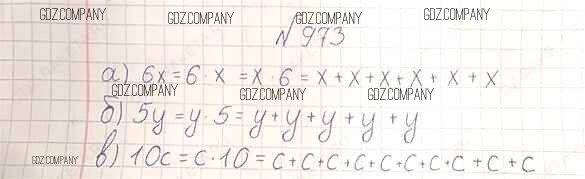 GDZ.COMPANY GDZ.COMPANY GDZ.COMPANY GDZ.COMPANY
№ 973
а) 6x = 6 · x = x · 6 = x + x + x + x + x + x
GDZ.COMPANY GDZ.COMPANY GDZ.COMPANY
б) 5y = y · 5 = y + y + y + y + y
GDZ.COMPANY
в) 10c = c · 10 = c + c + c + c + c + c + c + c + c + c